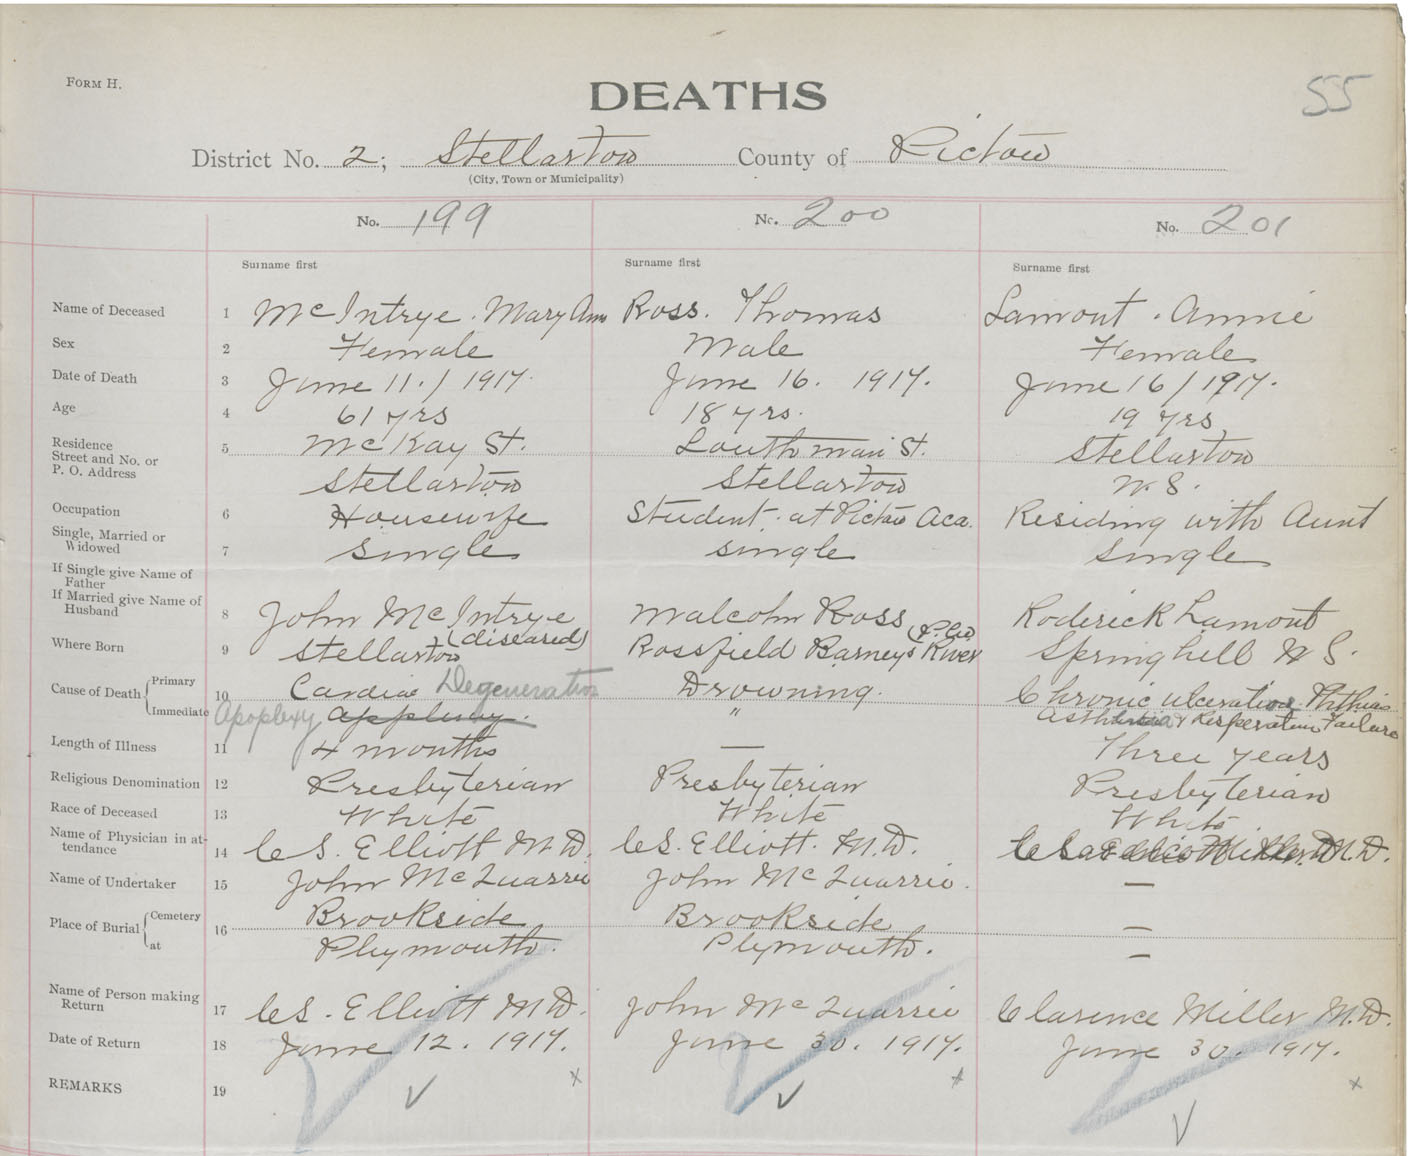 FORM H.
DEATHS
555
District No. 2; Stellarton County of Pictou
(City, Town or Municipality)
No. 199 No. 200 No. 201
Surname first Surname first Surname first
Name of Deceased 1 McIntrye. Mary Ann Ross. Thomas Lamont. Annie
Sex 2 Female Male Female
Date of Death 3 June 11./1917. June 16. 1917. June 16/1917.
Age 4 61 yrs 18 yrs. 19 yrs
Residence Street and No. or P. O. Address 5 McKay St. South main St. Stellarton
Stellarton Stellarton N.S.
Occupation 6 Housewife Student. at Pictou Aca. Residing with Aunt
Single, Married or Widowed 7 Single Single Single
If Single give Name of Father
If Married give Name of Husband 8 John McIntrye (diseased) Malcolm Ross Roderick Lamont
Where Born 9 Stellarton Rossfield Barneys River P. Co. Springhill N S.
Cause of Death Primary 10 Cardiac Degeneration Drowning. Chronic ulceration Phthisis
Immediate Apoplexy " Respiration Failure
Length of Illness 11 4 months — Three years
Religious Denomination 12 Presbyterian Presbyterian Presbyterian
Race of Deceased 13 White White White
Name of Physician in attendance 14 C S. Elliott M.D. C S. Elliott. M.D. Miller M.D.
Name of Undertaker 15 John McQuarrie John McQuarrie. —
Place of Burial Cemetery 16 Brookside Brookside —
at Plymouth. Plymouth. —
Name of Person making Return 17 C S. Elliott M.D. John McQuarrie Clarence Miller M.D.
Date of Return 18 June 12. 1917. June 30. 1917. June 30. 1917.
REMARKS 19